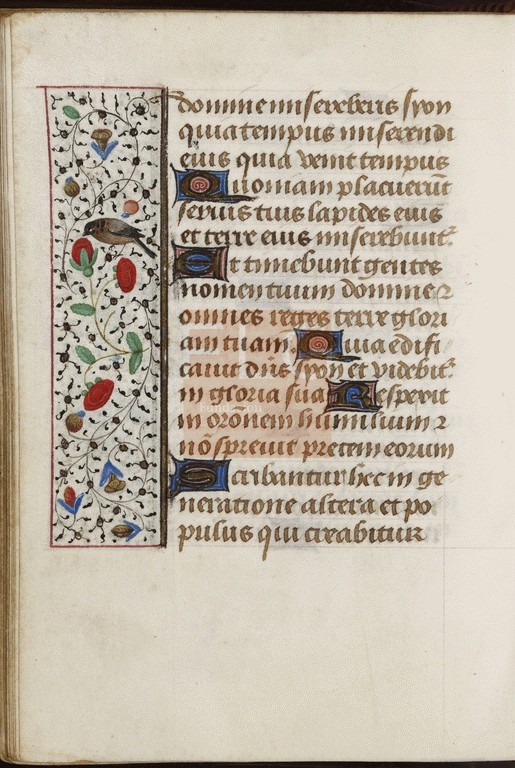 domine misereberis syon
quia tempus miserendi
eius quia venit tempus
Quoniam placuerūt
servis tuis lapides eius
et terre eius miserebunt᷑
Et timebunt gentes
nomen tuum domine ⁊
omnes reges terre glori
am tuam. Quia edifi
cavit dn̄s syon et videbit᷑
in gloria sua Respexit
in or̄onem humilium ⁊
nō sprevit precem eorum
Scribantur hec in ge
neratione altera et po
pulus qui creabitur
Fundación